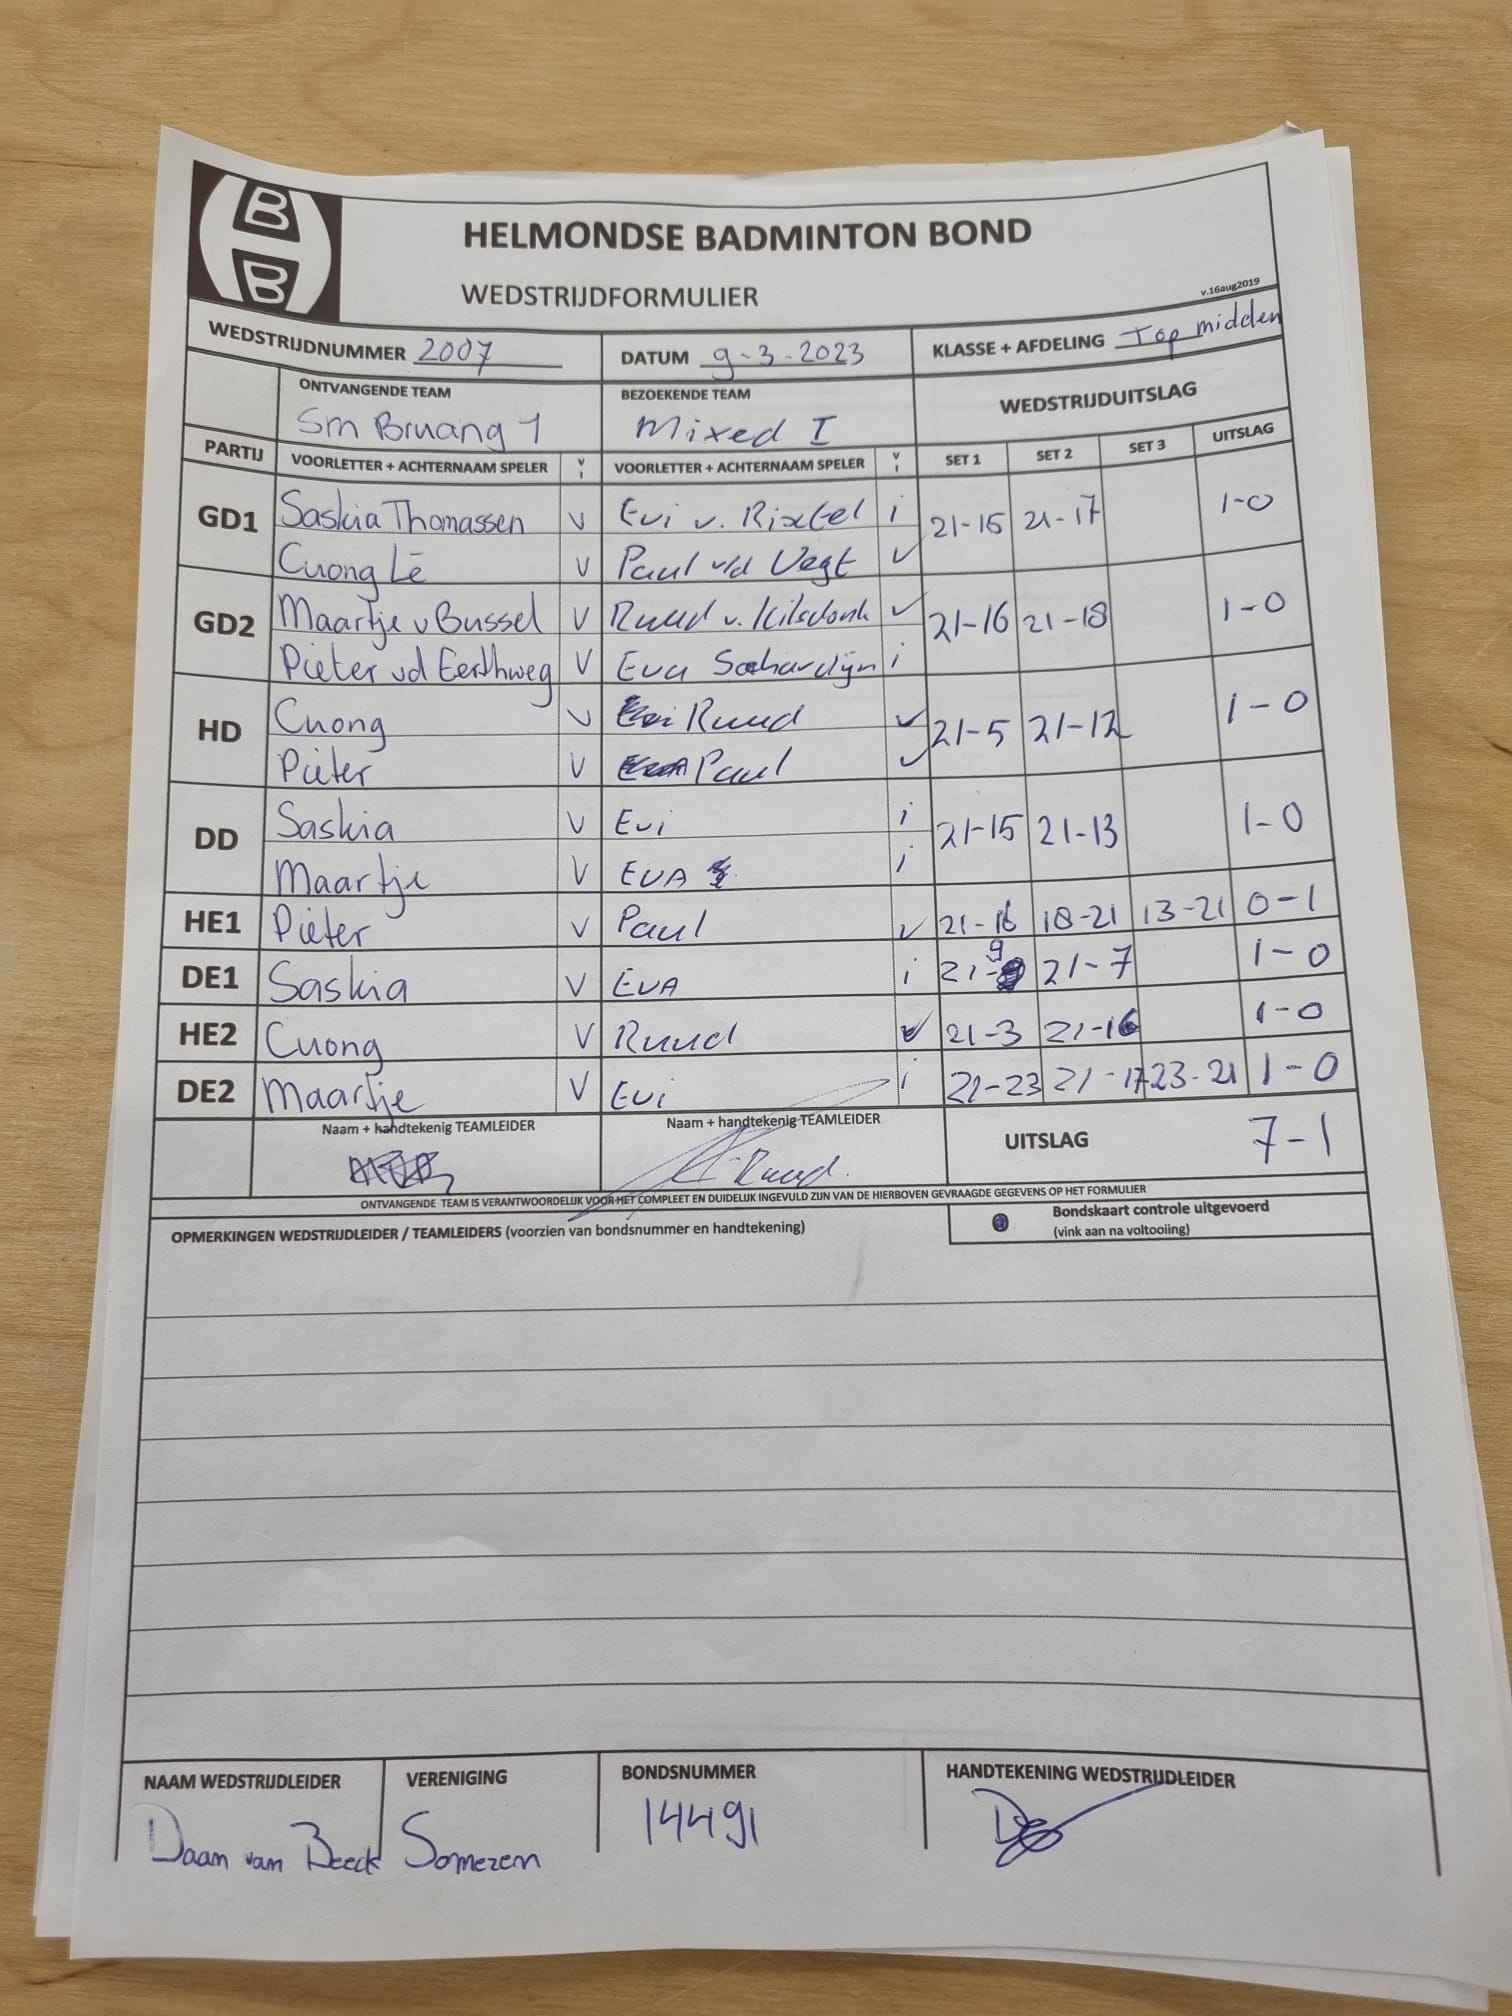 B
B
HELMONDSE BADMINTON BOND
WEDSTRIJDFORMULIER
v.16aug2019
WEDSTRIJDNUMMER 2007 DATUM 9-3-2023 KLASSE + AFDELING Top midden
ONTVANGENDE TEAM BEZOEKENDE TEAM WEDSTRIJDUITSLAG
Sm Bruang 1 Mixed I
PARTIJ VOORLETTER + ACHTERNAAM SPELER V I VOORLETTER + ACHTERNAAM SPELER V I SET 1 SET 2 SET 3 UITSLAG
GD1 Saskia Thomassen V Evi v. Rixtel i 21-15 21-17 1-0
Cuong Lê V Paul v/d Vegt V
GD2 Maartje v Bussel V Ruud v. Kilsdonk V 21-16 21-18 1-0
Pieter vd Eerthweg V Eva Schardijn i
HD Cuong V Ruud V 21-5 21-12 1-0
Pieter V Paul V
DD Saskia V Evi i 21-15 21-13 1-0
Maartje V EVA i
HE1 Pieter V Paul V 21-16 18-21 13-21 0-1
DE1 Saskia V EVA i 21-9 21-7 1-0
HE2 Cuong V Ruud V 21-3 21-16 1-0
DE2 Maartje V Evi i 21-23 21-17 23-21 1-0
Naam + handtekenig TEAMLEIDER Naam + handtekenig TEAMLEIDER UITSLAG 7-1
Ruud.
ONTVANGENDE TEAM IS VERANTWOORDELIJK VOOR HET COMPLEET EN DUIDELIJK INGEVULD ZIJN VAN DE HIERBOVEN GEVRAAGDE GEGEVENS OP HET FORMULIER
OPMERKINGEN WEDSTRIJDLEIDER / TEAMLEIDERS (voorzien van bondsnummer en handtekening) Bondskaart controle uitgevoerd
(vink aan na voltooiing)
NAAM WEDSTRIJDLEIDER VERENIGING BONDSNUMMER HANDTEKENING WEDSTRIJDLEIDER
Daam van Beeck Somezem 14491